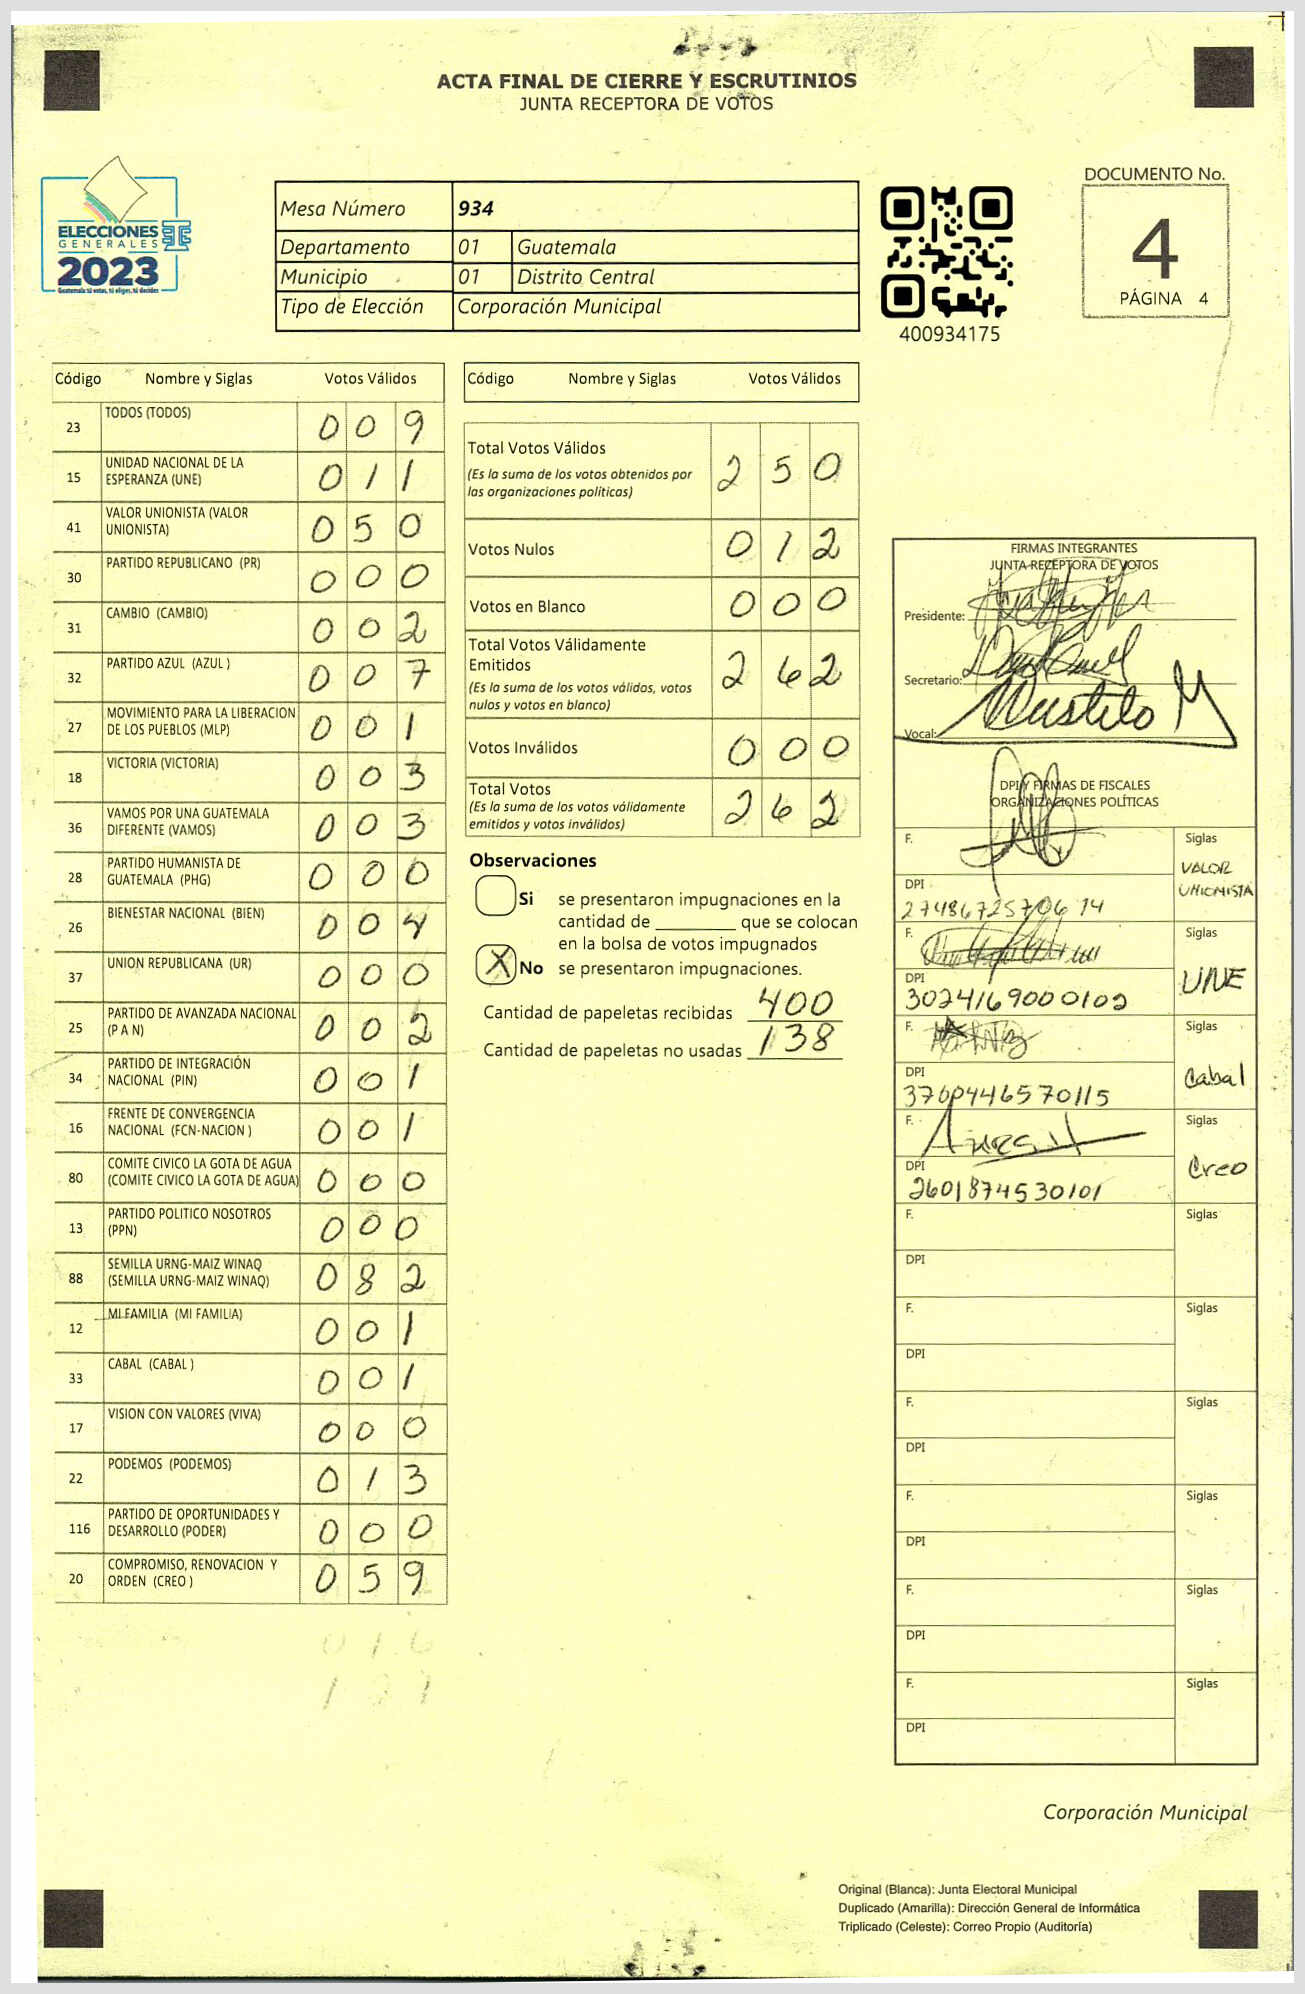 ACTA FINAL DE CIERRE Y ESCRUTINIOS
JUNTA RECEPTORA DE VOTOS
ELECCIONES
GENERALES
2023
Guatemala tú votas, tú eliges, tú decides
Mesa Número 934
Departamento 01 Guatemala
Municipio 01 Distrito Central
Tipo de Elección Corporación Municipal
400934175
DOCUMENTO No.
4
PÁGINA 4
Código Nombre y Siglas Votos Válidos
23 TODOS (TODOS) 0 0 9
15 UNIDAD NACIONAL DE LA ESPERANZA (UNE) 0 1 1
41 VALOR UNIONISTA (VALOR UNIONISTA) 0 5 0
30 PARTIDO REPUBLICANO (PR) 0 0 0
31 CAMBIO (CAMBIO) 0 0 2
32 PARTIDO AZUL (AZUL ) 0 0 7
27 MOVIMIENTO PARA LA LIBERACION DE LOS PUEBLOS (MLP) 0 0 1
18 VICTORIA (VICTORIA) 0 0 3
36 VAMOS POR UNA GUATEMALA DIFERENTE (VAMOS) 0 0 3
28 PARTIDO HUMANISTA DE GUATEMALA (PHG) 0 0 0
26 BIENESTAR NACIONAL (BIEN) 0 0 4
37 UNION REPUBLICANA (UR) 0 0 0
25 PARTIDO DE AVANZADA NACIONAL (P A N) 0 0 2
34 PARTIDO DE INTEGRACIÓN NACIONAL (PIN) 0 0 1
16 FRENTE DE CONVERGENCIA NACIONAL (FCN-NACION ) 0 0 1
80 COMITE CIVICO LA GOTA DE AGUA (COMITE CIVICO LA GOTA DE AGUA) 0 0 0
13 PARTIDO POLITICO NOSOTROS (PPN) 0 0 0
88 SEMILLA URNG-MAIZ WINAQ (SEMILLA URNG-MAIZ WINAQ) 0 8 2
12 MI FAMILIA (MI FAMILIA) 0 0 1
33 CABAL (CABAL ) 0 0 1
17 VISION CON VALORES (VIVA) 0 0 0
22 PODEMOS (PODEMOS) 0 1 3
116 PARTIDO DE OPORTUNIDADES Y DESARROLLO (PODER) 0 0 0
20 COMPROMISO, RENOVACION Y ORDEN (CREO ) 0 5 9
Código Nombre y Siglas Votos Válidos
Total Votos Válidos 2 5 0
(Es la suma de los votos obtenidos por
las organizaciones políticas)
Votos Nulos 0 1 2
Votos en Blanco 0 0 0
Total Votos Válidamente
Emitidos 2 6 2
(Es la suma de los votos válidos, votos
nulos y votos en blanco)
Votos Inválidos 0 0 0
Total Votos 2 6 2
(Es la suma de los votos válidamente
emitidos y votos inválidos)
Observaciones
Si se presentaron impugnaciones en la
cantidad de ________ que se colocan
en la bolsa de votos impugnados
X No se presentaron impugnaciones.
Cantidad de papeletas recibidas 400
Cantidad de papeletas no usadas 138
FIRMAS INTEGRANTES
JUNTA RECEPTORA DE VOTOS
Presidente:
Secretario:
Vocal:
DPI Y FIRMAS DE FISCALES
ORGANIZACIONES POLÍTICAS
F. Siglas
VALOR
UNIONISTA
DPI
F. Siglas
UNE
DPI
3024169000102
F. Siglas
Cabal
DPI
F. Siglas
Creo
DPI
2601874530101
F. Siglas
DPI
F. Siglas
DPI
F. Siglas
DPI
F. Siglas
DPI
F. Siglas
DPI
F. Siglas
DPI
Corporación Municipal
Original (Blanca): Junta Electoral Municipal
Duplicado (Amarilla): Dirección General de Informática
Triplicado (Celeste): Correo Propio (Auditoría)